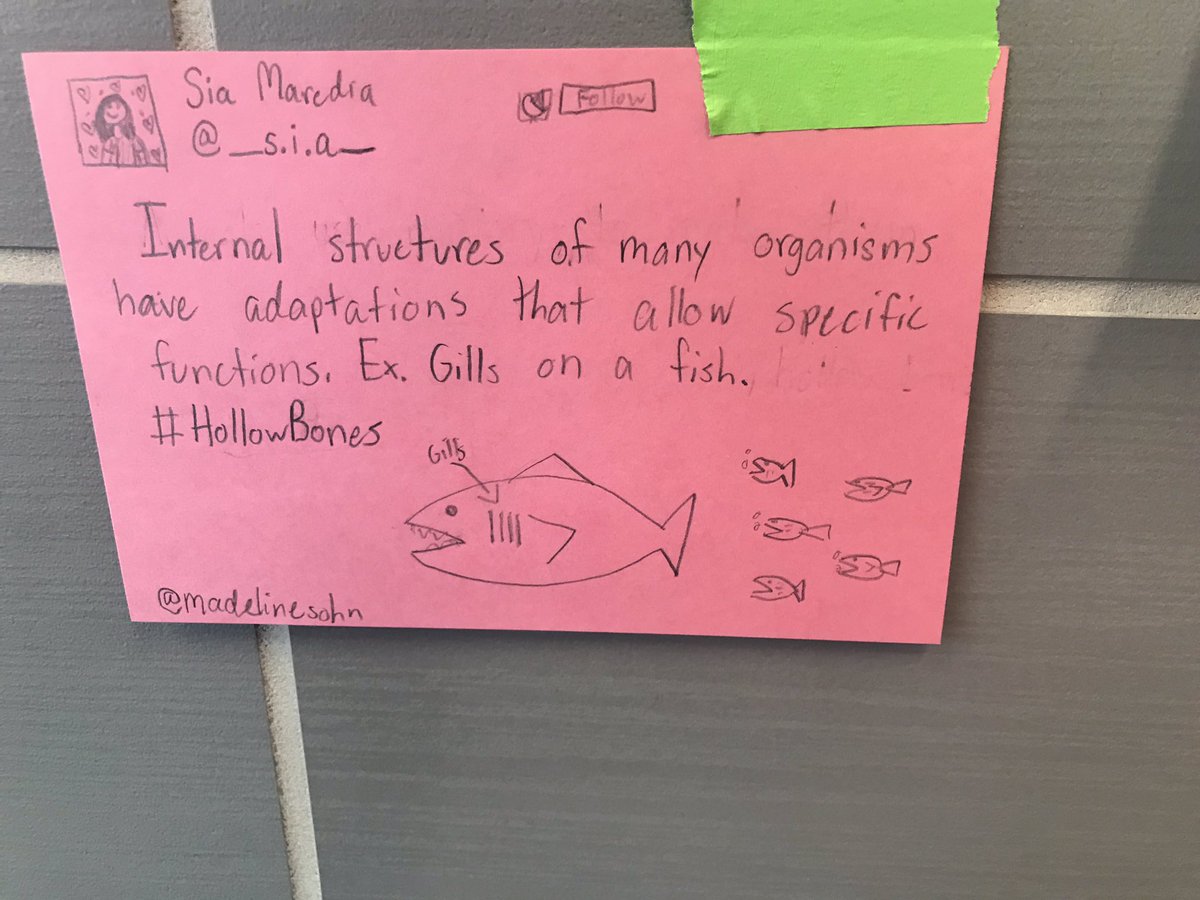 Sia Maredia
Follow
@__s.i.a__
Internal structures of many organisms
have adaptations that allow specific
functions. Ex. Gills on a fish.
#HollowBones
Gills
@madelinesohn